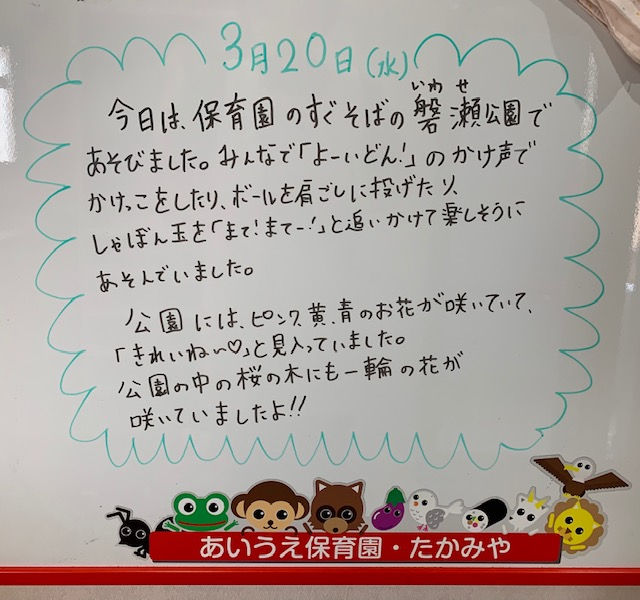 3月20日(水)
今日は、保育園のすぐそばの磐瀬公園で
いわせ
あそびました。みんなで「よーいどん!」のかけ声で
かけっこをしたり、ボールを肩ごしに投げたり、
しゃぼん玉を「まて!まてー!」と追いかけて楽しそうに
あそんでいました。
公園には、ピンク、黄、青のお花が咲いていて、
「きれいね〜♡」と見入っていました。
公園の中の桜の木にも一輪の花が
咲いていましたよ!!
あいうえ保育園・たかみや